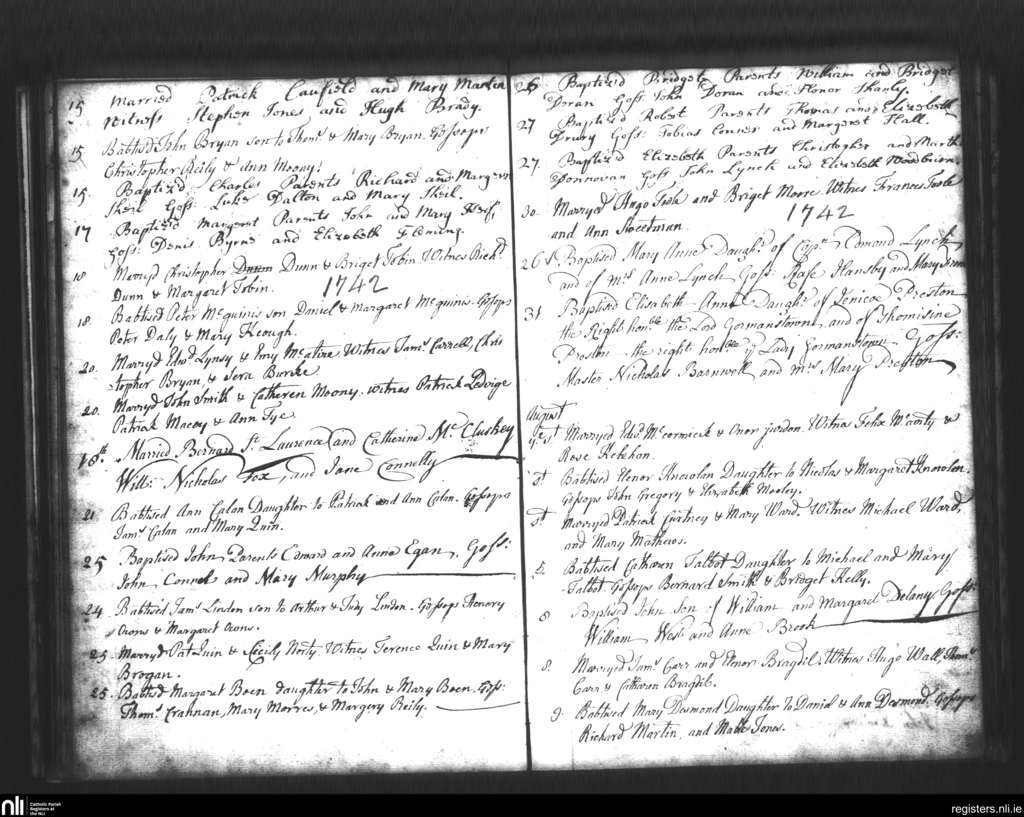 15 Married Patrick Caufield and Mary Martin
Witness Stephen Jones and Hugh Brady.
15 Babtised John Bryan son to Thoms. & Mary Bryan. Gossops
Christopher Reily & Ann Moony.
15. Baptized Charles Parents Richard and Margere
Sheil Goss: Luke Dalton and Mary Sheil.
17 Baptized Margaret Parents John and Mary
Goss: Denis Byrne and Elizabeth Fleming.
18 Maryed Christopher Dunn Dunn & Briget Tobin Witnes Richd.
Dunn & Margaret Tobin. 1742
18. Babtised Peter McGuinis son Daniel & Margaret McGuinis. Gossops
Peter Daly & Mary Keough.
20. Marryd Edwd Lynsy & Witnes Jams. Carrell, Chris
topher Bryan, & Sera Burke.
20. Marryd John Smith & Catheren Moony. witnes Patrick Ledwige
Patrick Macoy & Ann Tye.
18th Married Bernard St. Laurence, and Catherine Mc.Cluskey
Witts: Nicholas Fox, and Jane Connelly
21. Babtised Ann Calan Daughter to Patrick and Ann Calan. Gossops
Jams. Calan and Mary Quin.
25 Baptised John Parents Edward and Anne Egan, Goss:
John, Connel and Mary Murphy
24. Babtised Jams. Lindon son to Arthur & Judy Lindon. Gossops Henory
Orons & Margaret Orons.
25. Marryd Pat Quin & Cecily Norty. Witnes Terence Quin & Mary
Brogan.
25. Babtisd Margaret Boen daughter to John & Mary Boen. Goss:
Thoms. Crannan, Mary Morres, & Margery Reily.
26 Baptized Bridget Parents William and Bridget
Doran Goss John Doran and Honor Shanly.
27 Baptized Robert Parents Thomas and Elizabeth
Drury Goss: Tobias Conner and Margaret Hall.
27. Baptized Elizabeth Parents Christopher and Marth
Donnovan Goss John Lynch and Elizabeth Woodburn
30. Marryed Hugo Toole and Briget Moore. Witnes Frances Toole
and Ann Sweetman. 1742
26 Baptised Mary Anne Daughr. of Captn. Edmond Lynch
and of Mrs. Anne Lynch Goss: Rose Hansby and Mary
31 Baptised Elisabeth Anne Daughr. of Jenico Preston
the Right honble. the Lord Gormanstown, and of Thomisine
Preston the right honble. ye Lady Gormanstown Goss:
Master Nicholas Barnwell and Mrs Mary Preston
August
ye 1st Marryed Edwd. Mc.cormick & Onor jordon. Witnes Felix Mc.anty &
Rose Kekehan.
3d. Babtised Elenor Knowlan Daughter to Nicolas & Margaret Knowlan.
Gossops John Gregory & Elizabeth Mooley.
5t Marryed Patrick Curtney & Mary Ward. Witnes Michael Ward,
and Mary Mathews.
5. Babtised Catharen Talbot Daughter to Michael and Mary
Talbot. Gossops Bernard Smith & Bridget Kelly.
8 Baptised John son of William and Margaret Delany, Goss:
William West and Anne Brook
8. Marryed Jams. Carr and Elenor Bragdil. Witnes Hugo Wall, Thoms.
Carr & Catharen Bragdil.
9. Babtised Mary Desmond Daughter to Daniel & Ann Desmond. Gossops
Richard Martin, and Mable Jones.
nli Catholic Parish
Registers at
the NLI
registers.nli.ie